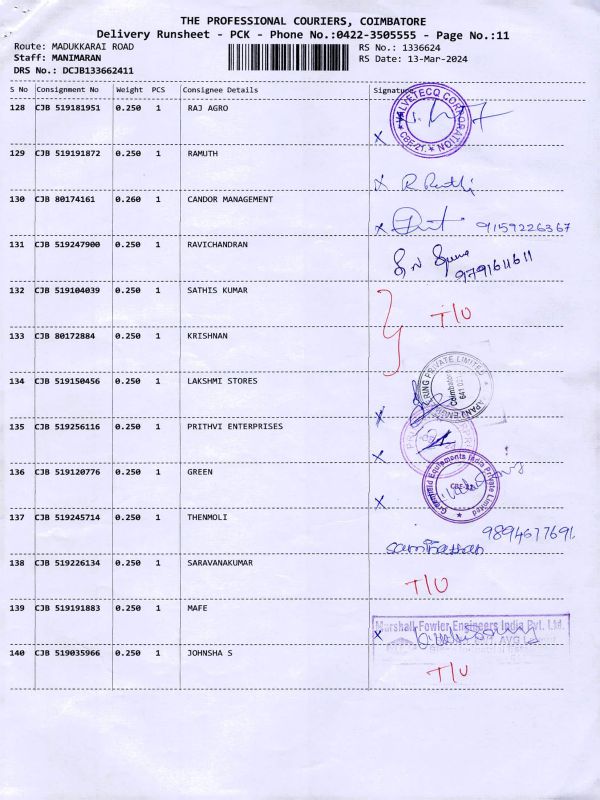 THE PROFESSIONAL COURIERS, COIMBATORE
Delivery Runsheet - PCK - Phone No.:0422-3505555 - Page No.:11
Route: MADUKKARAI ROAD RS No.: 1336624
Staff: MANIMARAN RS Date: 13-Mar-2024
DRS No.: DCJB133662411
S No Consignment No Weight PCS Consignee Details Signature
128 CJB 519181951 0.250 1 RAJ AGRO
VALVETECQ CORPORATION
CBE-21.
X
129 CJB 519191872 0.250 1 RAMUTH
X R
130 CJB 80174161 0.260 1 CANDOR MANAGEMENT
X 9159226367
131 CJB 519247900 0.250 1 RAVICHANDRAN
9791611611
132 CJB 519104039 0.250 1 SATHIS KUMAR
T/U
133 CJB 80172884 0.250 1 KRISHNAN
134 CJB 519150456 0.250 1 LAKSHMI STORES
RING PRIVATE LIMITED
Coimbatore
641 021
X
135 CJB 519256116 0.250 1 PRITHVI ENTERPRISES
X
136 CJB 519120776 0.250 1 GREEN
Equipments India Private Limited
X
137 CJB 519245714 0.250 1 THENMOLI
9894677691
138 CJB 519226134 0.250 1 SARAVANAKUMAR
T/U
139 CJB 519191883 0.250 1 MAFE
Marshall Fowler Engineers India Pvt. Ltd.
X
140 CJB 519035966 0.250 1 JOHNSHA S
T/U